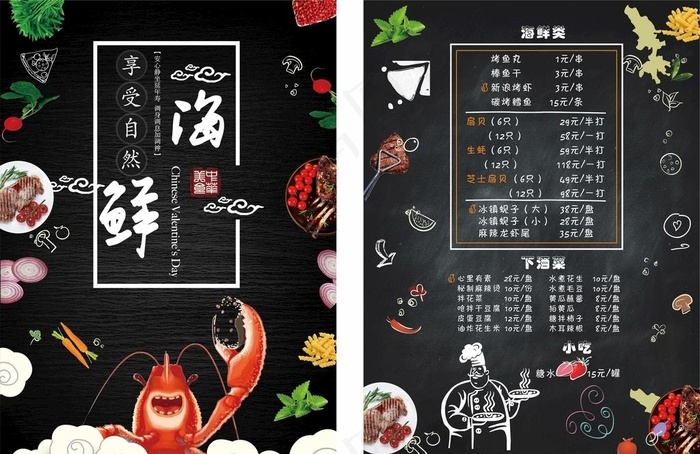 享受自然
【安心静坐延年寿 调身调息加调神】
海鲜
中华美食
Chinese Valentine's Day
海鲜类
烤鱼丸 1元/串
棒鱼干 3元/串
新浪烤虾 3元/串
碳烤鳕鱼 15元/条
扇贝（6只） 29元/半打
（12只） 58元/一打
生蚝（6只） 59元/半打
（12只） 118元/一打
芝士扇贝（6只） 49元/半打
（12只） 98元/一打
冰镇蚬子（大） 38元/盘
冰镇蚬子（小） 28元/盘
麻辣龙虾尾 35元/盘
下酒菜
心里有素 28元/盘 水煮花生 10元/盘
秘制麻辣烫 10元/份 水煮毛豆 10元/盘
拌花菜 10元/盘 黄瓜蘸酱 8元/盘
呛拌干豆腐 10元/盘 拍黄瓜 8元/盘
皮蛋豆腐 12元/盘 糖拌柿子 8元/盘
油炸花生米 10元/盘 木耳辣根 8元/盘
小吃
糖水 15元/罐